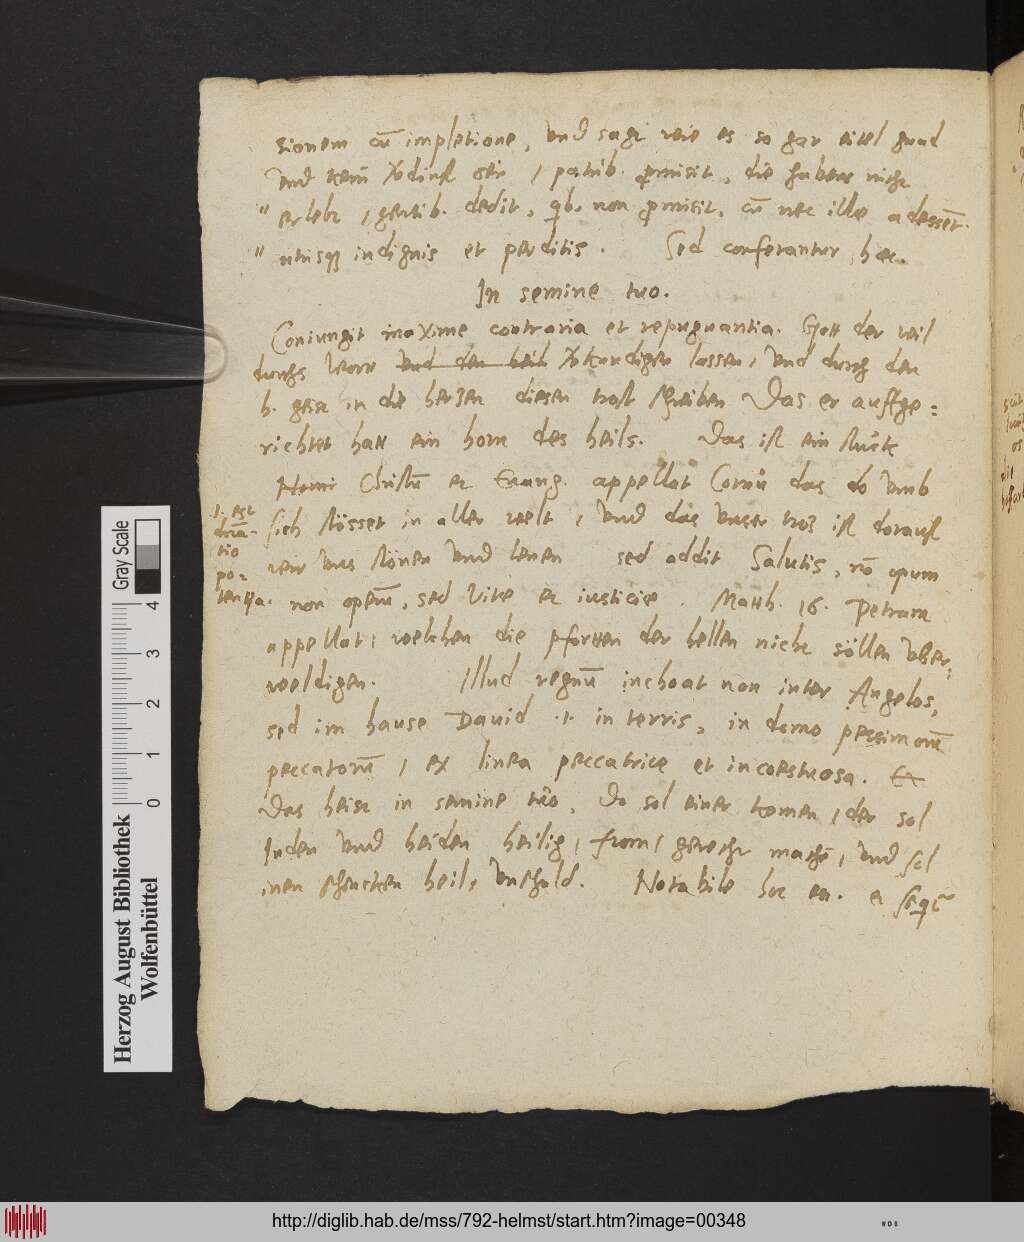 sionem cū impletione, und sagt wie es so gar eitel gnad
und kein verdinst sei / patrib. promisit, die habens nicht
" erlebt / gentib. dedit, qb. non promisit, cū nec illi adessēt
" utrisq indignis et perditis. Sed conferantur hec.
In semine tuo.
Coniungit maxime contraria et repugnantia. Gott der wil
durchs wort und den heil verkundigen lassen, und durch den
h. geist in die hertzen diesen trost schreiben Das er auffge=
richtet hatt ein horn des heils. Das ist ein stuck
Christū et Euang. appellat Cornu das do umb
sich stösset in aller welt, und das unser troz ist darauff
wir uns und lenen sed addit Salutis, nō opum
non operū, sed vite et iusticie. Matth. 16. Petram
appellat, welchen die pfortten der hellen nicht söllen uber=
weldigen. Illud regnū inchoat non inter Angelos,
sed im hause Dauid .i. in terris, in domo pessimorū
peccatorū, ex linea peccatrice et incoestuosa. Et
Das heist in semine tuo, Do sol einer komen, der sol
Juden und heiden heilig, from, gerecht machē, und sol
inen schencken heil, unschuld. Notabile hoc
i. est
po=
tentia.
Gray Scale
4
3
2
1
0
Herzog August Bibliothek
Wolfenbüttel
http://diglib.hab.de/mss/792-helmst/start.htm?image=00348